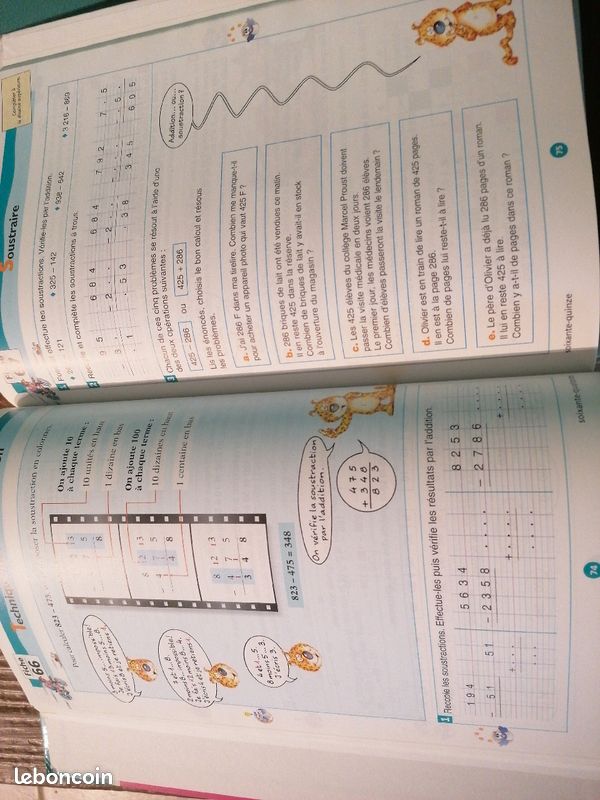 Fiche
66
Technique
poser la soustraction en colonnes
Pour calculer 823 - 475
On ajoute 10
à chaque terme :
10 unités en haut
1 dizaine en bas
On ajoute 100
à chaque terme :
10 dizaines en haut
1 centaine en bas
8 12 13
4 7 5
8
8 12 13
4 7 5
4 8
8 12 13
- 4 7 5
3 4 8
4 et 1... 5.
8 moins 5... 3.
J'écris 3.
823 - 475 = 348
On vérifie la soustraction
par l'addition...
4 7 5
+ 3 4 8
8 2 3
1 Recopie les soustractions. Effectue-les puis vérifie les résultats par l'addition.
1 9 4
- 5 1
5 1
5 6 3 4
- 2 3 5 8
8 2 5 3
- 2 7 8 6
74
soixante-quinze
oustraire
Compléter à
la dizaine supérieure.
effectue les soustractions. Vérifie-les par l'addition.
121
325 - 142
938 - 642
3 216 - 803
et complète les soustractions à trous.
6 8 4
6 8 4
7 9 2
7 . 5
3 4 5
6 0 5
3 Chacun de ces cinq problèmes se résout à l'aide d'une
des deux opérations suivantes :
425 - 286 ou 425 + 286
Lis les énoncés, choisis le bon calcul et résous
les problèmes.
Addition... ou...
soustraction ?
a. J'ai 286 F dans ma tirelire. Combien me manque-t-il
pour acheter un appareil photo qui vaut 425 F ?
b. 286 briques de lait ont été vendues ce matin.
Il en reste 425 dans la réserve.
Combien de briques de lait y avait-il en stock
à l'ouverture du magasin ?
c. Les 425 élèves du collège Marcel Proust doivent
passer la visite médicale en deux jours.
Le premier jour, les médecins voient 286 élèves.
Combien d'élèves passeront la visite le lendemain ?
d. Olivier est en train de lire un roman de 425 pages.
Il en est à la page 286.
Combien de pages lui reste-t-il à lire ?
e. Le père d'Olivier a déjà lu 286 pages d'un roman.
Il lui en reste 425 à lire.
Combien y a-t-il de pages dans ce roman ?
soixante-quinze
75
leboncoin